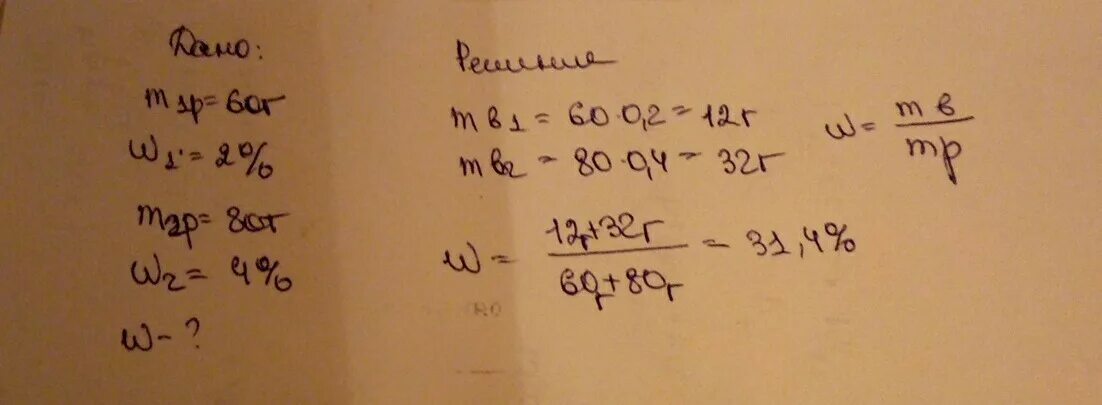 Дано:
m1р=60г
W1=2%
m2р=80г
W2=4%
W-?
Решение
mв1=60·0,2=12г
mв2=80·0,4=32г
W=mв/mр
W=12г+32г/60г+80г=31,4%